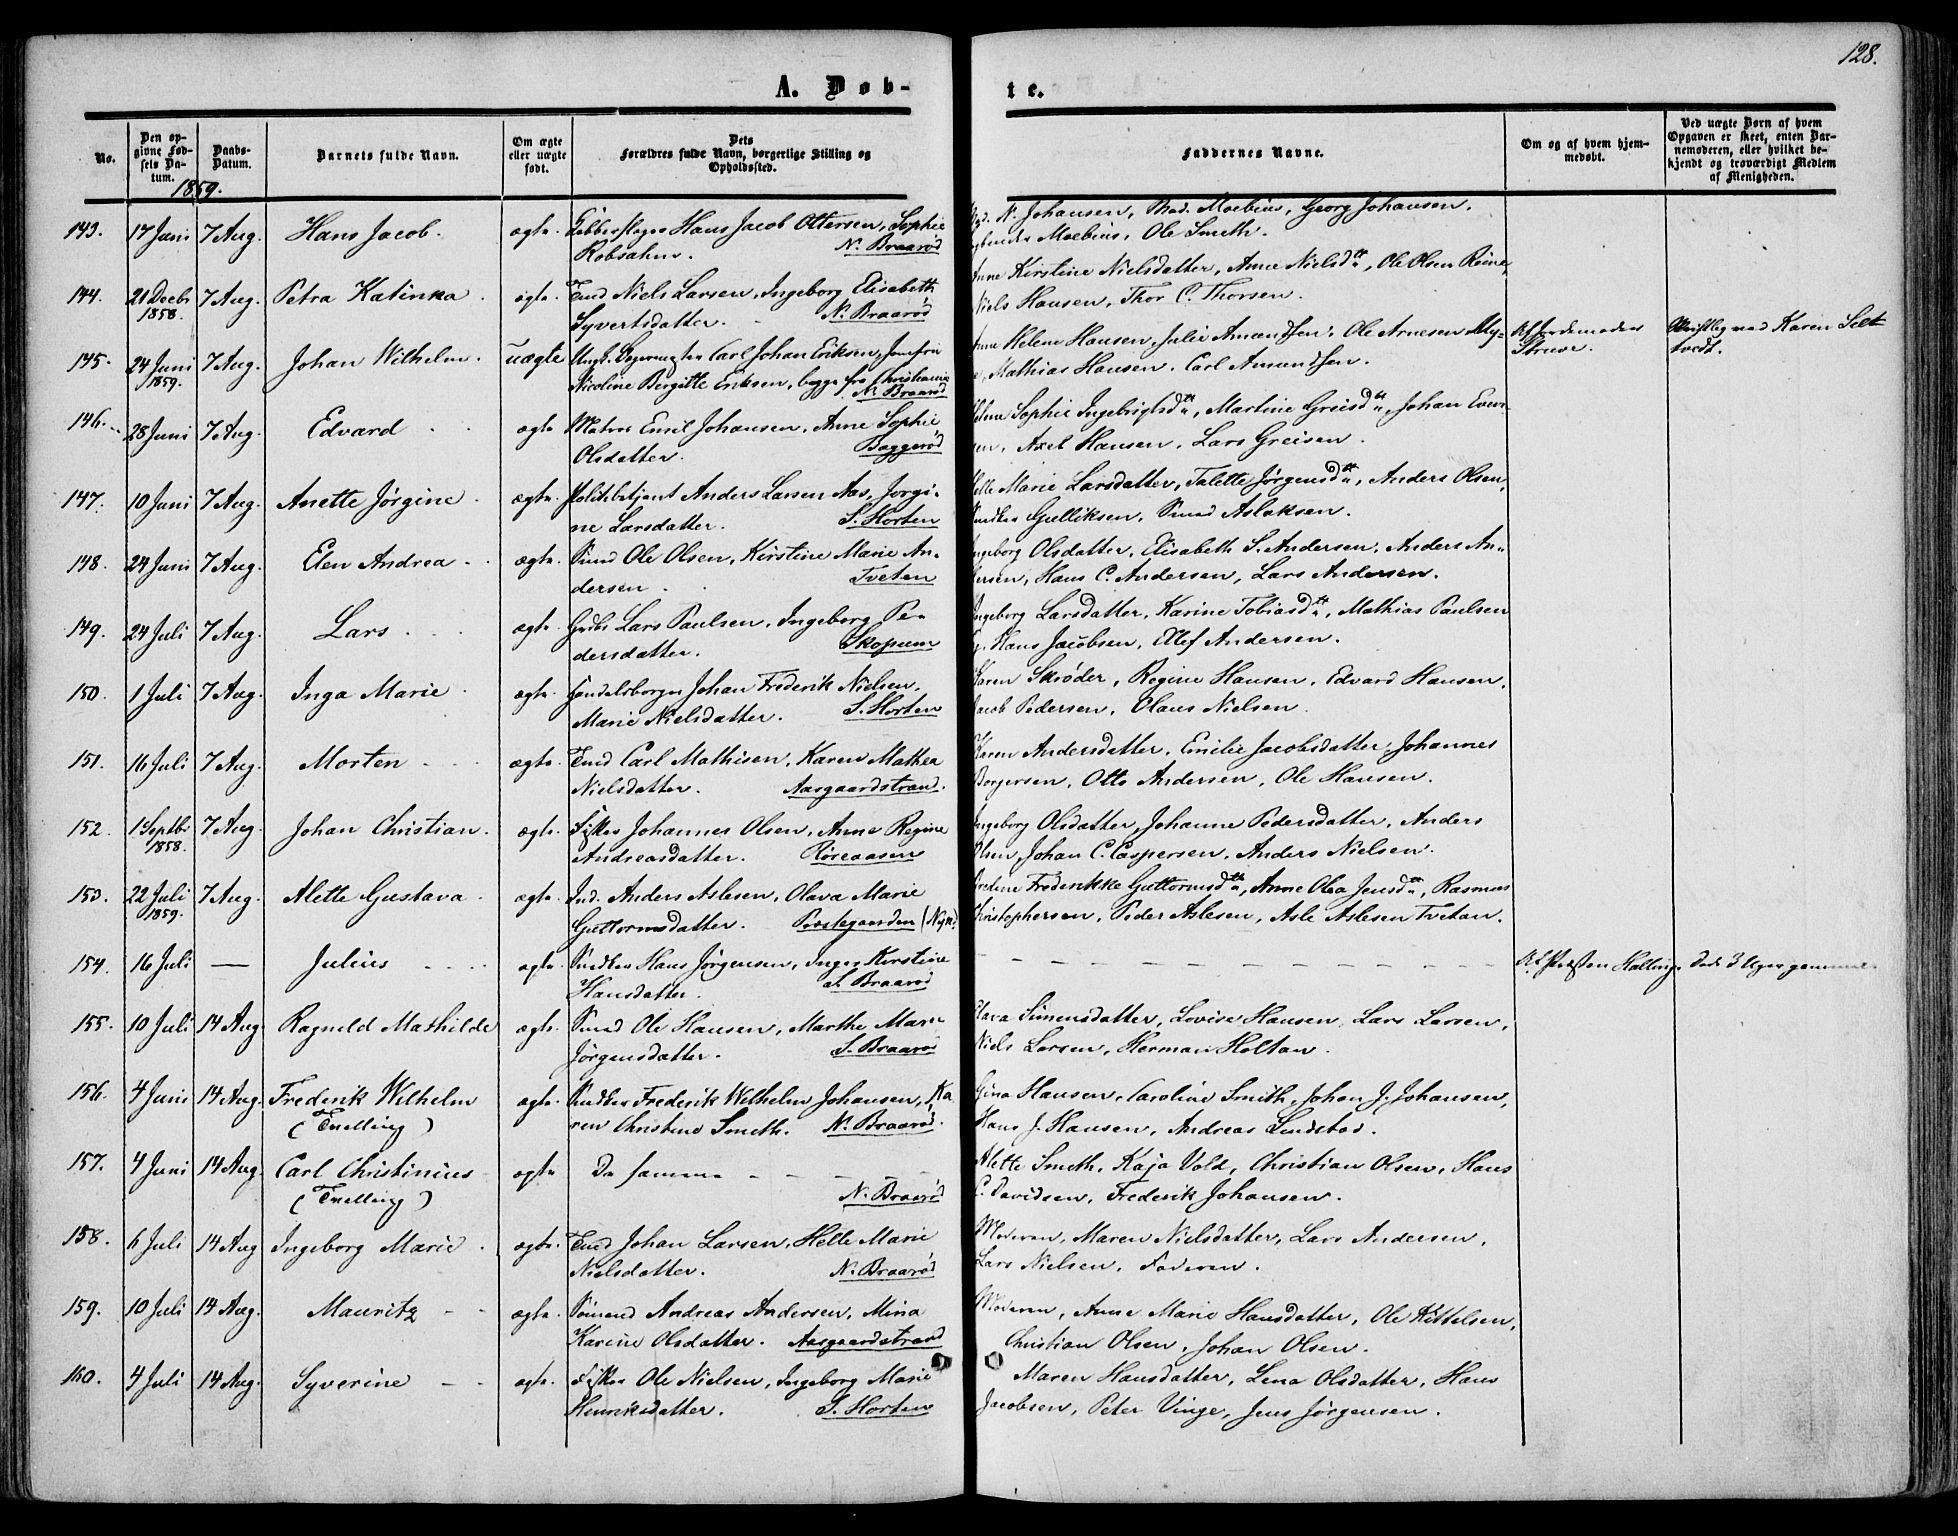 128.
A. Døb-
te.
No.
Den op-
givne Fød-
sels Da-
tum.
Daabs-
Datum.
Barnets fulde Navn.
Om ægte
eller uægte
født.
Dets
Forældres fulde Navn, borgerlige Stilling og
Opholdssted.
Faddernes Navne.
Om og af hvem hjem-
medøbt.
Ved uægte Børn af hvem
Opgaven er skeet, enten Bar-
nemoderen, eller hvilket be-
kjendt og troværdigt Medlem
af Menigheden.
1859.
143. 17 Juni 7 Aug. Hans Jacob. ægte Hans Jacob Ottersen, Sophie N. Johansen, Mad. Moebius, Georg Johansen.
Robsahm. N. Braarød Moebius, Ole Smeth.
144. 21 Decbr 7 Aug. Petra Katinka. ægte Tmd Niels Larsen, Ingeborg Elisabeth Anne Kirstine Nielsdatter, Anne Nielsdtr, Ole Olsen
1858. Syvertsdatter. N. Braarød Niels Hansen, Thor C. Thorsen.
145. 24 Juni 7 Aug. Johan Wilhelm. uægte Ungk. Carl Johan Eriksen, Jomfru Helene Hansen, Julie Amundsen, Ole Arnesen My- Af Jordemoder Karen Sett
1859. Nicoline Birgitte Eriksen, begge fra Christiania Mathias Hansen, Carl Amundsen. Struve. tvedt.
N. Braarød
146. 28 Juni 7 Aug. Edvard ægte Matros Emil Johansen, Anne Sophie Sophie Ingebrigtsdtr, Martine Greisdtr, Johan Even-
Olsdatter. Baggerød sen, Axel Hansen, Lars Greisen.
147. 10 Juni 7 Aug. Anette Jørgine ægte Politibetjent Anders Larsen Aas, Jørgi- Helle Marie Larsdatter, Talette Jørgensdtr, Anders Olsen,
ne Larsdatter. S. Horten Snedker Gulliksen, Smed Aslaksen.
148. 24 Juni 7 Aug. Elen Andrea ægte Smed Ole Olsen, Kirstine Marie An- Ingeborg Olsdatter, Elisabeth S. Andersen, Anders An-
dersen. Tveten dersen, Hans C. Andersen, Lars Andersen.
149. 24 Juli 7 Aug. Lars ægte Gdbr Lars Paulsen, Ingeborg Pe- Ingeborg Larsdatter, Karine Tobiasdtr, Mathias Paulsen
dersdatter. Skopum Hans Jacobsen, Ellef Andersen.
150. 1 Juli 7 Aug. Inga Marie ægte Handelsborger Johan Frederik Nielsen, Karen Skrøder, Regine Hansen, Edvard Hansen,
Marie Nielsdatter. S. Horten Jacob Pedersen, Olaus Nielsen.
151. 16 Juli 7 Aug. Morten ægte Tmd Carl Mathisen, Karen Mathea Karen Andersdatter, Emilie Jacobsdatter, Johannes
Nielsdatter. Aasgaardstrand. Borgersen, Otto Andersen, Ole Hansen.
152. 1 Septbr 7 Aug. Johan Christian. ægte Fisker Johannes Olsen, Anne Regine Ingeborg Olsdatter, Johanne Pedersdatter, Anders
1858. Andreasdatter. Røreaasen Olsen, Johan C. Caspersen, Anders Nielsen.
153. 22 Juli 7 Aug. Alette Gustava. ægte Ind. Anders Aslesen, Olava Marie Frederikke Guttormsdtr, Anne Olea Jensdtr, Rasmus
1859. Guttormsdatter. Prestegaarden Christophersen, Peder Aslesen, Asle Aslesen Tvetan.
154. 16 Juli — Julius ægte Snedker Hans Jørgensen, Inger Kirstine Præsten Halling. Død 3 Uger gammel.
Hansdatter. S. Braarød
155. 10 Juli 14 Aug Ragnild Mathilde ægte Smed Ole Hansen, Marthe Marie Olava Simensdatter, Lovise Hansen, Lars Larsen,
Jørgensdatter. S. Braarød Niels Larsen, Herman Holtan.
156. 4 Juni 14 Aug. Frederik Wilhelm ægte Snedker Frederik Wilhelm Johansen, Ka- Gina Hansen, Caroline Smith, Johan J. Johansen,
(Tvelling) ren Christine Smeth. N. Braarød. Hans J. Hansen, Andreas Lindstad.
157. 4 Juni 14 Aug. Carl Christinius ægte De samme Alette Smeth, Kaja Vold, Christian Olsen, Hans
(Tvelling) N. Braarød C. Davidsen, Frederik Johansen.
158. 6 Juli 14 Aug Ingeborg Marie ægte Tmd Johan Larsen, Helle Marie Moderen, Maren Nielsdatter, Lars Andersen,
Nielsdatter. N. Braarød Lars Nielsen, Faderen.
159. 10 Juli 14 Aug. Mauritz ægte Sømand Andreas Andersen, Mina Moderen, Anne Marie Hansdatter, Ole Kittelsen,
Karine Olsdatter. Aasgaardstrand Christian Olsen, Johan Olsen.
160. 4 Juli 14 Aug. Syverine ægte Fisker Ole Nielsen, Ingeborg Marie Maren Hansdatter, Lena Olsdatter, Hans
Henriksdatter. S. Horten Jacobsen, Peter Vinge, Jens Jørgensen.